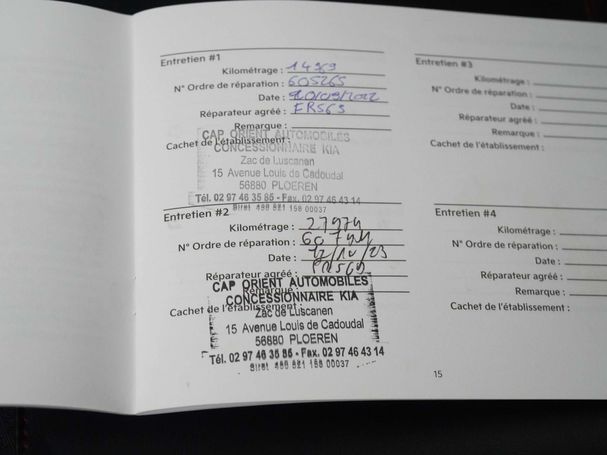 Entretien #1
Kilométrage : 14969
N° Ordre de réparation : 605265
Date : 20/09/2022
Réparateur agréé : FR569
Remarque :
Cachet de l'établissement :
CAP ORIENT AUTOMOBILES
CONCESSIONNAIRE KIA
Zac de Luscanen
15 Avenue Louis de Cadoudal
56880 PLOEREN
Tél. 02 97 46 35 85 - Fax. 02 97 46 43 14
Siret 488 821 158 00037
Entretien #2
Kilométrage : 27974
N° Ordre de réparation :
Date : 12/10/23
Réparateur agréé : FR569
Remarque :
Cachet de l'établissement :
CAP ORIENT AUTOMOBILES
CONCESSIONNAIRE KIA
Zac de Luscanen
15 Avenue Louis de Cadoudal
56880 PLOEREN
Tél. 02 97 46 35 85 - Fax. 02 97 46 43 14
Siret 488 821 158 00037
Entretien #3
Kilométrage :
N° Ordre de réparation :
Date :
Réparateur agréé :
Remarque :
Cachet de l'établissement :
Entretien #4
Kilométrage :
N° Ordre de réparation :
Date :
Réparateur agréé :
Remarque :
Cachet de l'établissement :
15